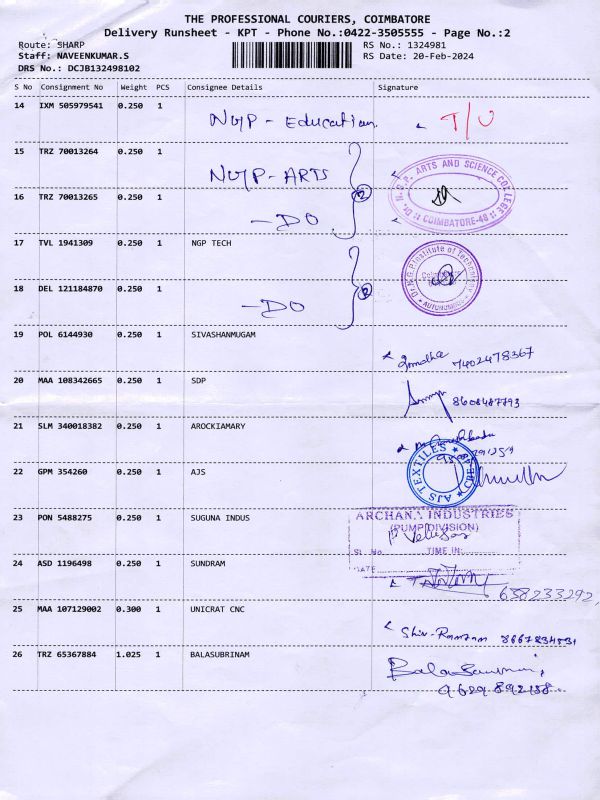 THE PROFESSIONAL COURIERS, COIMBATORE
Delivery Runsheet - KPT - Phone No.:0422-3505555 - Page No.:2
Route: SHARP RS No.: 1324981
Staff: NAVEENKUMAR.S RS Date: 20-Feb-2024
DRS No.: DCJB132498102
S No Consignment No Weight PCS Consignee Details Signature
14 IXM 505979541 0.250 1 NGP - Education T/U
15 TRZ 70013264 0.250 1 NGP - ARTS
Dr. N.G.P. ARTS AND SCIENCE COLLEGE
COIMBATORE-48
16 TRZ 70013265 0.250 1 - DO
17 TVL 1941309 0.250 1 NGP TECH
Dr.N.G.P.Institute of Technology
AUTONOMOUS
18 DEL 121184870 0.250 1 - DO
19 POL 6144930 0.250 1 SIVASHANMUGAM 7402478367
20 MAA 108342665 0.250 1 SDP 8608487793
21 SLM 340018382 0.250 1 AROCKIAMARY
22 GPM 354260 0.250 1 AJS
AJS TEXTILES
23 PON 5488275 0.250 1 SUGUNA INDUS
ARCHANA INDUSTRIES
(PUMP DIVISION)
Sl. No. TIME IN:
DATE
24 ASD 1196498 0.250 1 SUNDRAM 638233292
25 MAA 107129002 0.300 1 UNICRAT CNC 8667834531
26 TRZ 65367884 1.025 1 BALASUBRINAM
9629892188